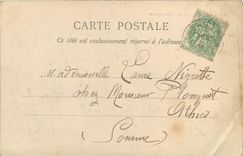 CARTE POSTALE
Ce côté est exclusivement réservé à l'adresse
Mademoiselle Laure Nignette
chez Monsieur P. Longuet
Athies
(Somme)